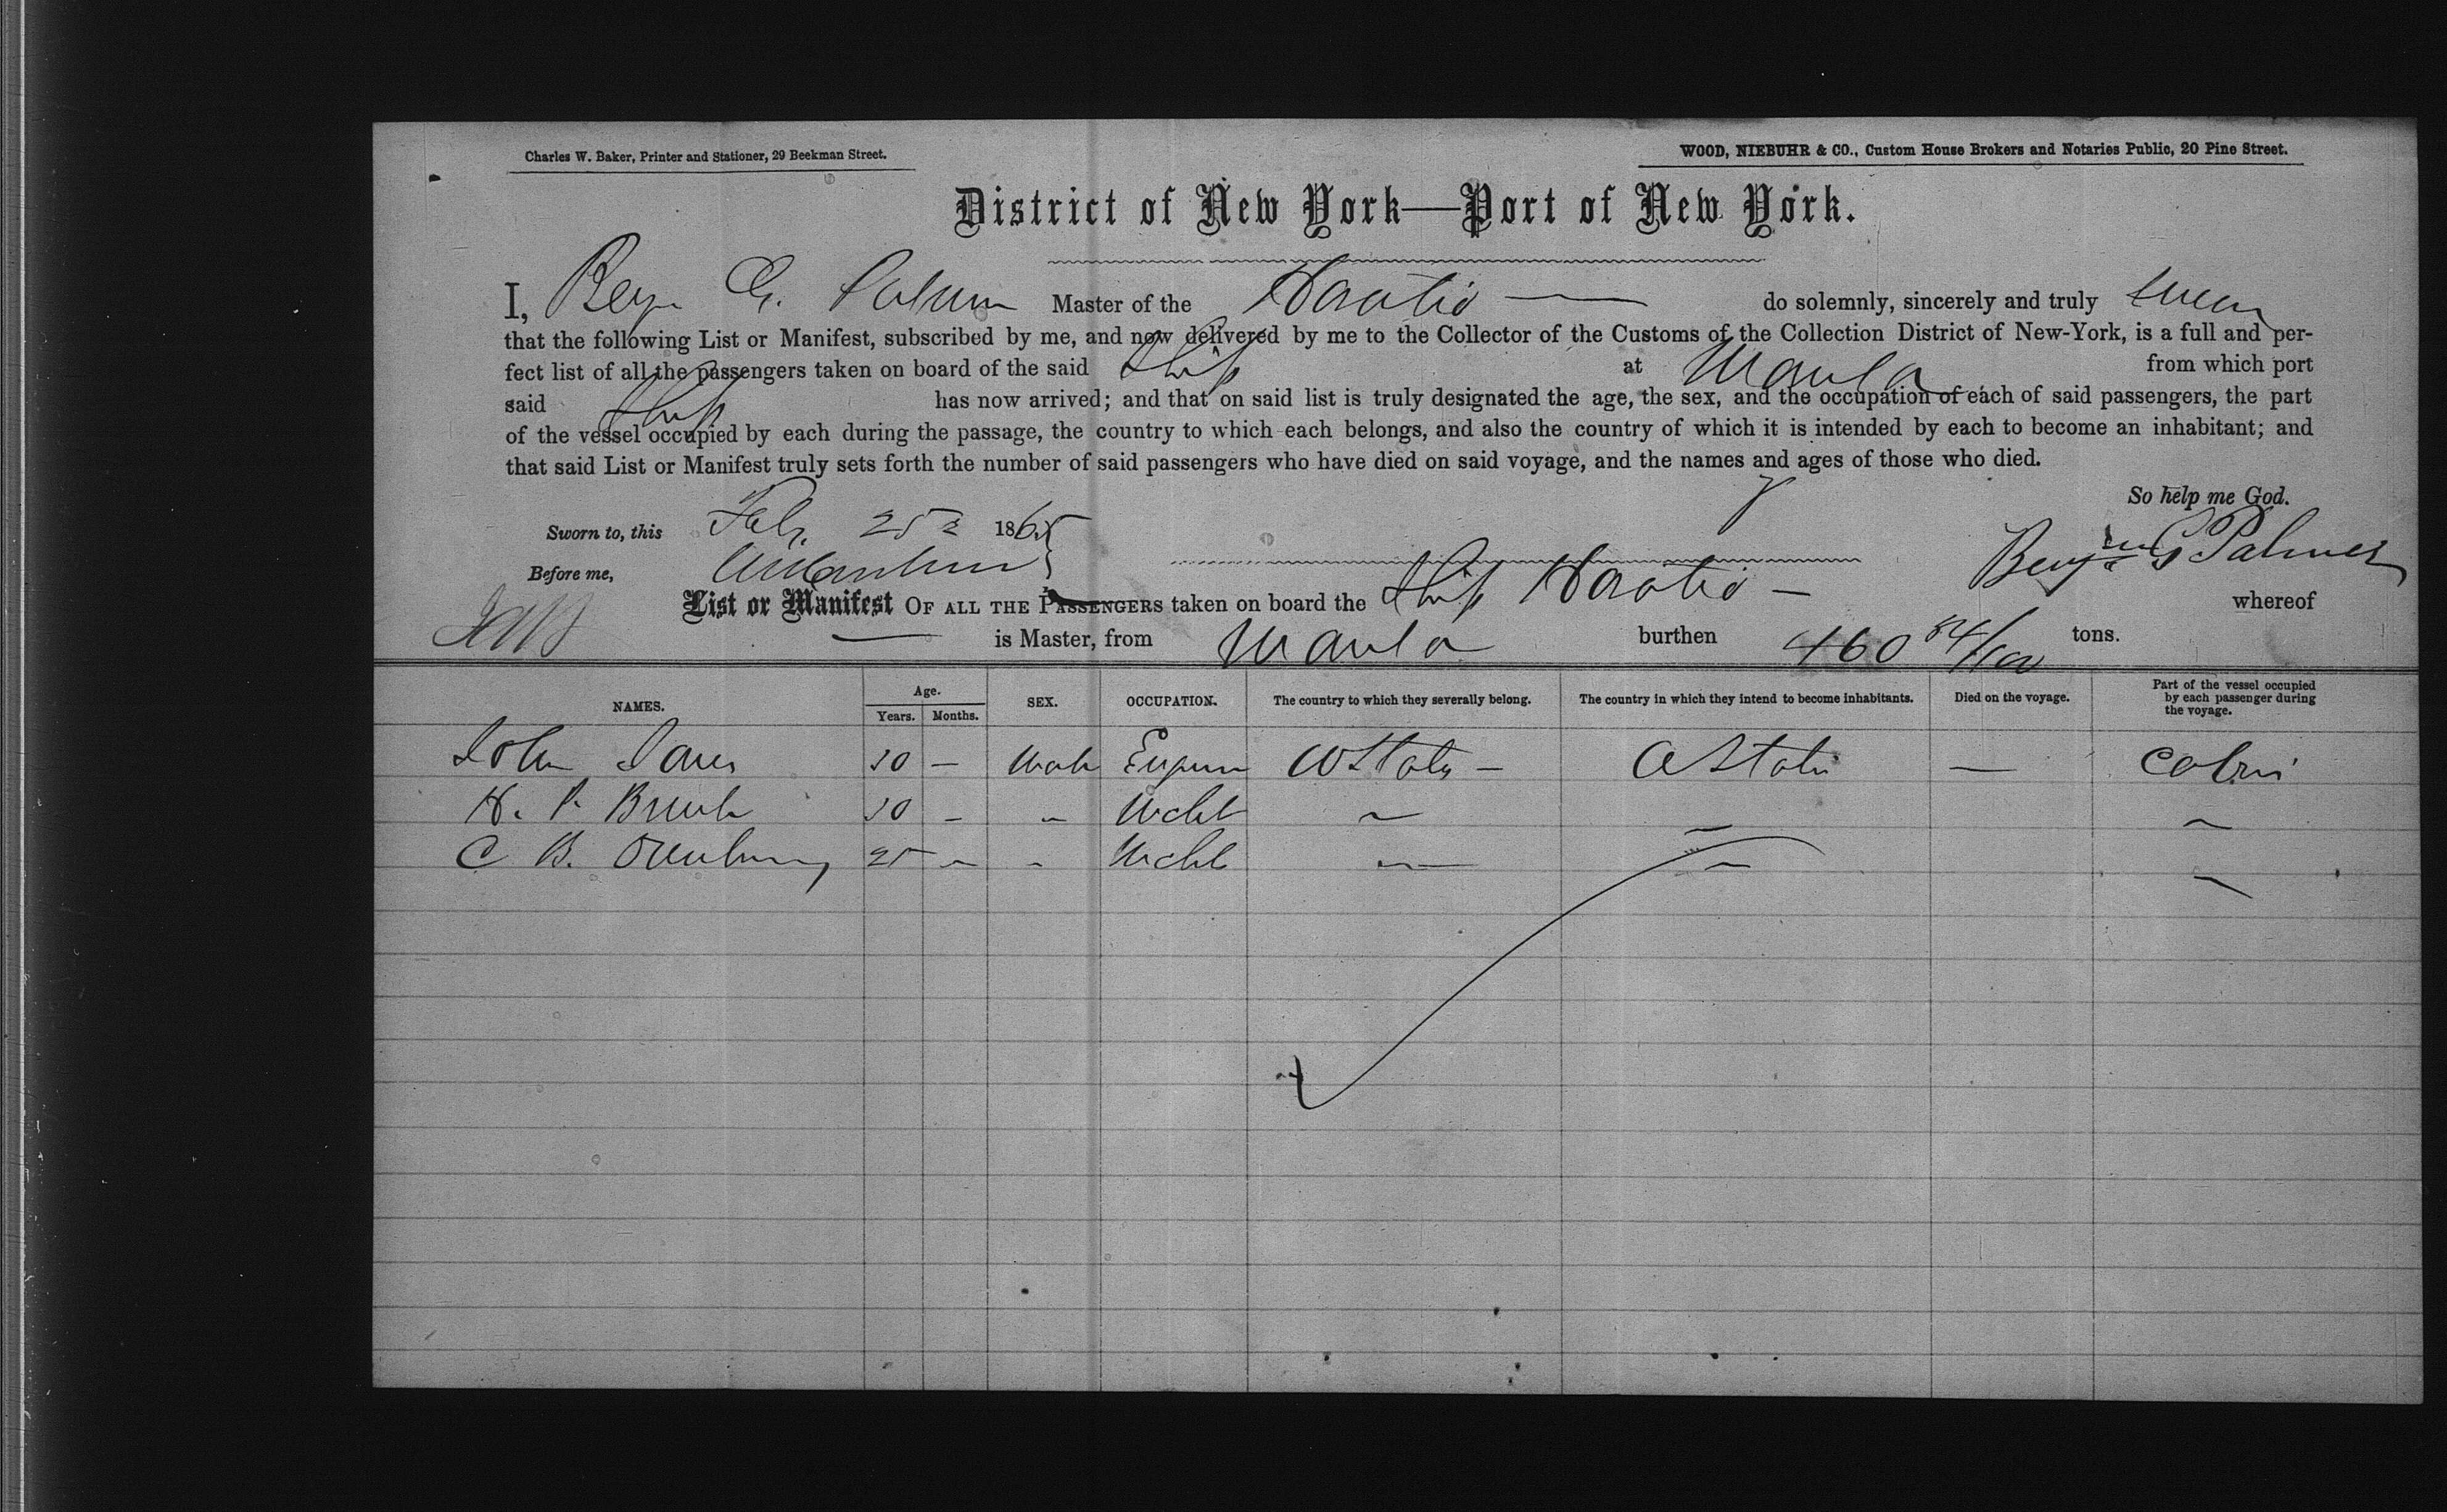 Charles W. Baker, Printer and Stationer, 29 Beekman Street.
WOOD, NIEBUHR & CO., Custom House Brokers and Notaries Public, 20 Pine Street.
District of New York—Port of New York.
I, Benj. G. Palmer Master of the Horatio — do solemnly, sincerely and truly swear
that the following List or Manifest, subscribed by me, and now delivered by me to the Collector of the Customs of the Collection District of New-York, is a full and per-
fect list of all the passengers taken on board of the said Ship at Manila from which port
said Ship has now arrived; and that on said list is truly designated the age, the sex, and the occupation of each of said passengers, the part
of the vessel occupied by each during the passage, the country to which each belongs, and also the country of which it is intended by each to become an inhabitant; and
that said List or Manifest truly sets forth the number of said passengers who have died on said voyage, and the names and ages of those who died.
So help me God.
Sworn to, this Feb. 25 1865
Benj. G Palmer
Before me,
List or Manifest OF ALL THE PASSENGERS taken on board the Ship Horatio — whereof
— is Master, from Manila burthen 460 84/100 tons.
NAMES. Age. Years. Months. SEX. OCCUPATION. The country to which they severally belong. The country in which they intend to become inhabitants. Died on the voyage. Part of the vessel occupied by each passenger during the voyage.
John 30 — Male U States — U States — Cabin
H. P. 30 - " Mcht " " "
C B. 25 - " Mcht " " "